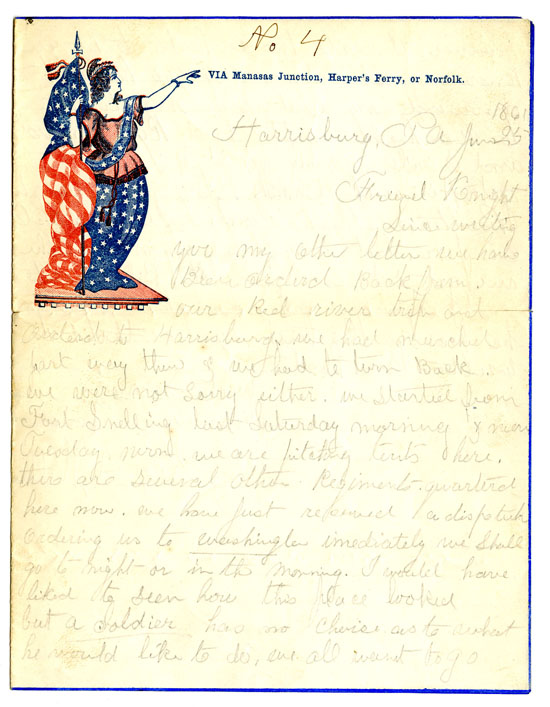 No 4
VIA Manasas Junction, Harper's Ferry, or Norfolk.
1861
Harrisburg, Pa June 25
Friend Knight
Since writing
you my other letter we have
been orderd Back from
our Red river trip and
orderd to Harrisburg. we had marched
part way then & we had to turn Back.
we were not sorry either. we started from
Fort Snelling last Saturday morning &
Tuesday morn. we are pitching tents here.
there are several other Regiments quarterd
here now. we have just received a dispatch
ordering us to washington imediately we shall
go to night or in the morning. I would have
liked to seen how this place looked
but a soldier has no choice as to what
he would like to do, we all want to go